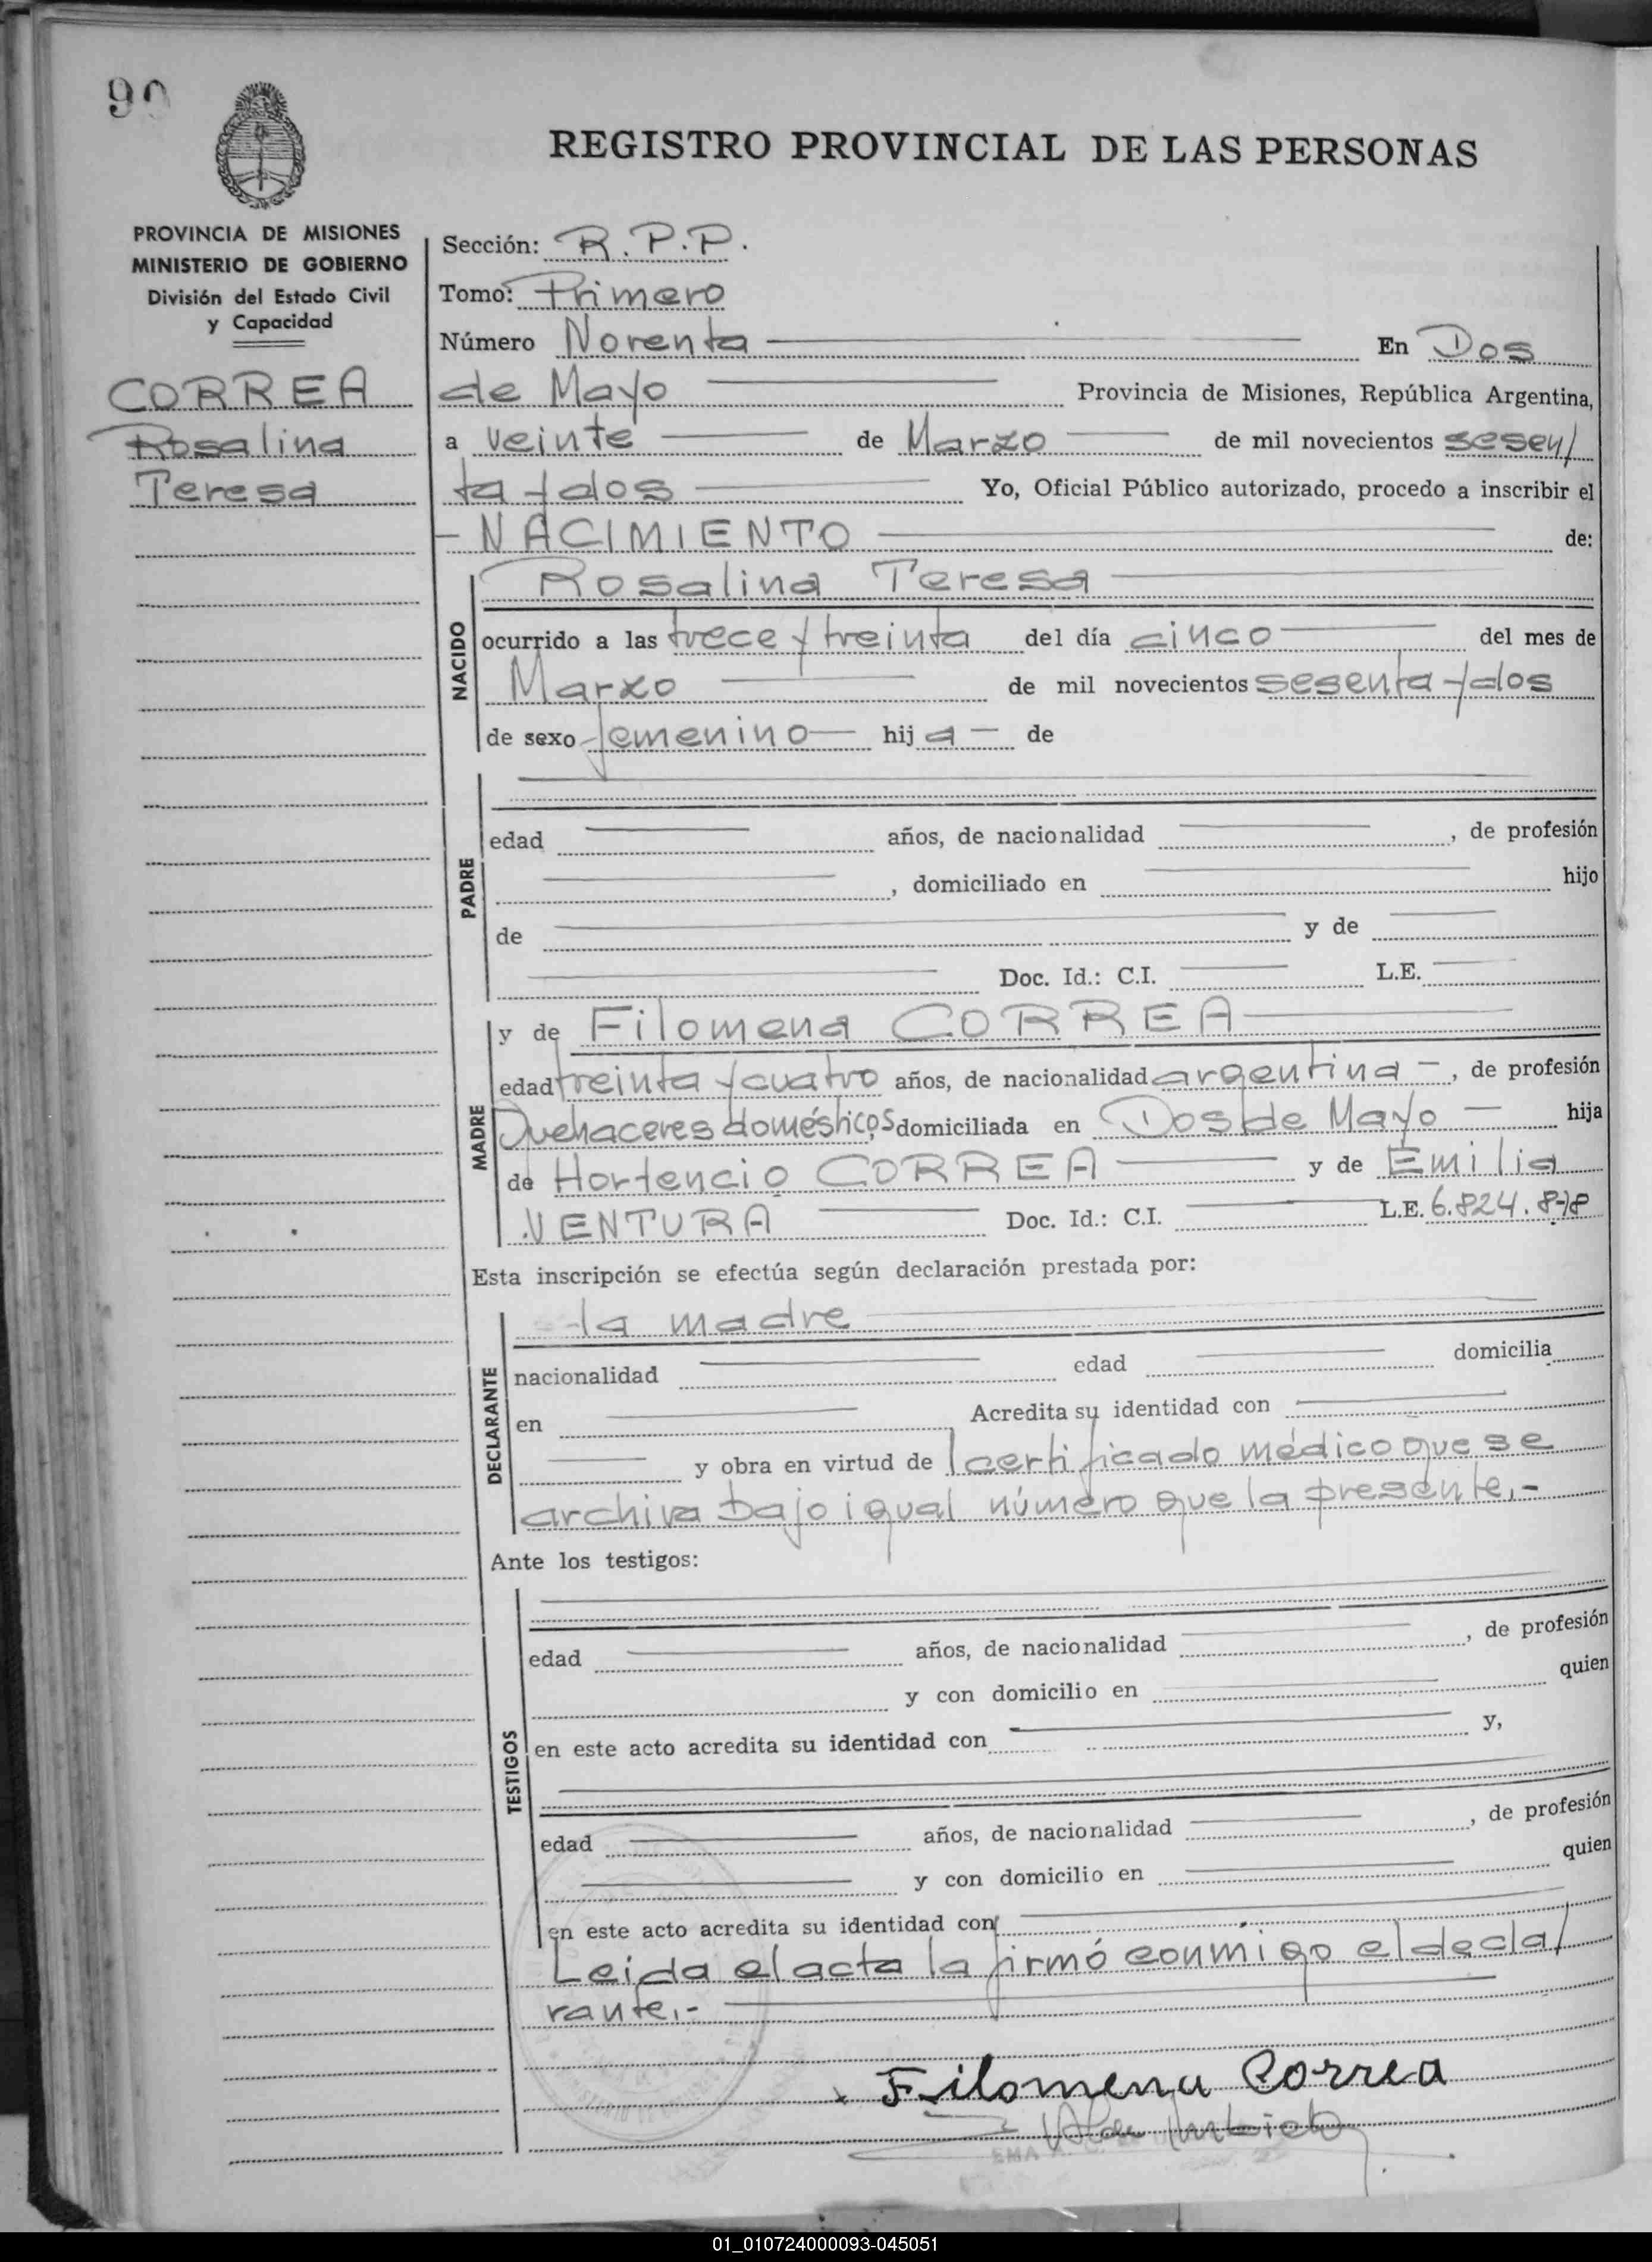 90
REGISTRO PROVINCIAL DE LAS PERSONAS
PROVINCIA DE MISIONES
MINISTERIO DE GOBIERNO
División del Estado Civil
y Capacidad
CORREA
Rosalina
Teresa
Sección: R.P.P.
Tomo: Primero
Número Noventa En Dos
de Mayo Provincia de Misiones, República Argentina,
a veinte de Marzo de mil novecientos sesen/
ta y dos Yo, Oficial Público autorizado, procedo a inscribir el
- NACIMIENTO de:
NACIDO
Rosalina Teresa
ocurrido a las trece y treinta del día cinco del mes de
Marzo de mil novecientos sesenta y dos
de sexo femenino hij a de
PADRE
edad años, de nacionalidad , de profesión
, domiciliado en hijo
de y de
Doc. Id.: C.I. L.E.
MADRE
y de Filomena CORREA
edad treinta y cuatro años, de nacionalidad argentina , de profesión
Quehaceres domésticos domiciliada en Dos de Mayo hija
de Hortencio CORREA y de Emilia
VENTURA Doc. Id.: C.I. L.E. 6.824.878
Esta inscripción se efectúa según declaración prestada por:
DECLARANTE
la madre
nacionalidad edad domicilia
en Acredita su identidad con
y obra en virtud de l certificado médico que se
archiva bajo igual número que la presente.-
Ante los testigos:
TESTIGOS
edad años, de nacionalidad , de profesión
y con domicilio en quien
en este acto acredita su identidad con y,
edad años, de nacionalidad , de profesión
y con domicilio en quien
en este acto acredita su identidad con
Leida el acta la firmó conmigo el decla/
rante.-
Filomena Correa
01_010724000093-045051